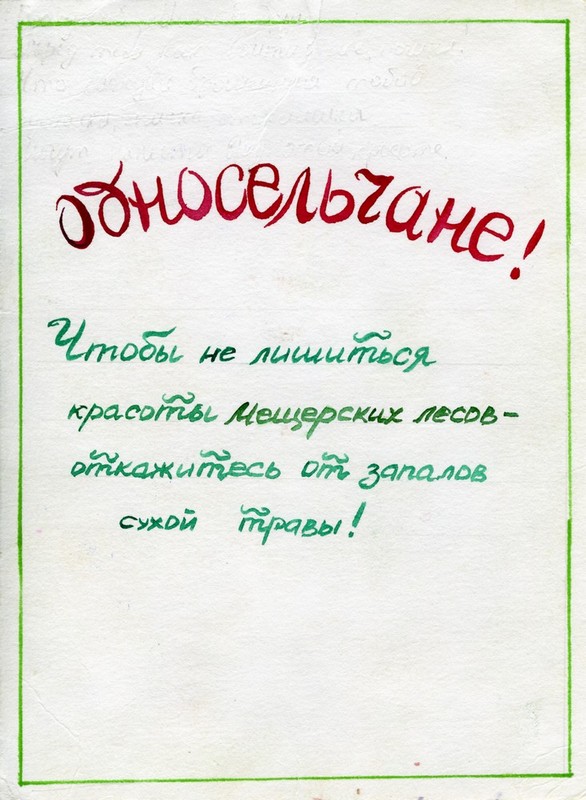 Односельчане!
Чтобы не лишиться
красоты Мещерских лесов-
откажитесь от запалов
сухой травы!